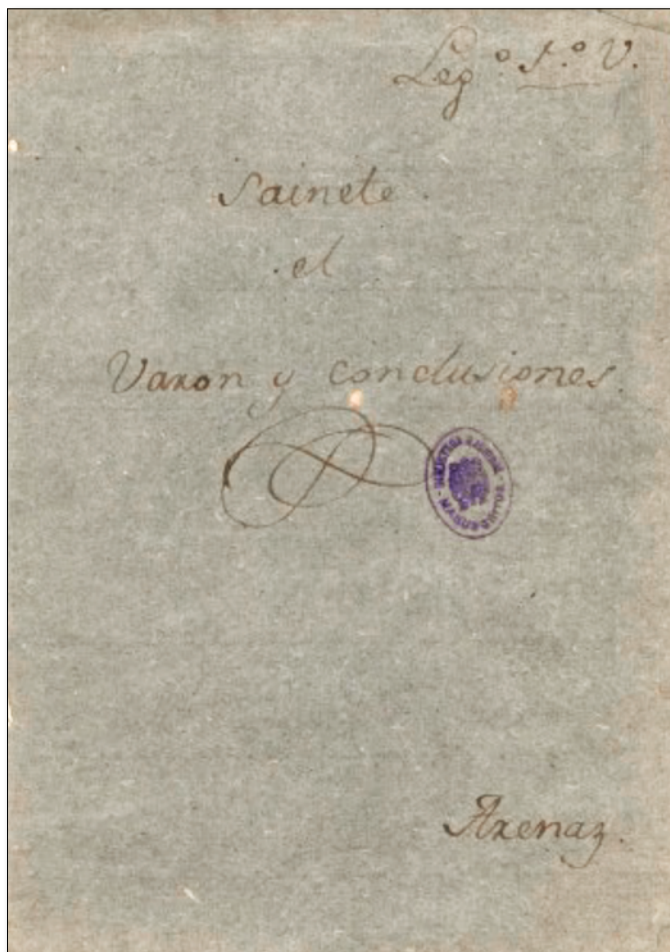 Leg.º 1.º V.
Sainete
el
Varon y conclusiones.
BIBLIOTECA NACIONAL
MANUSCRITOS
Arenaz.